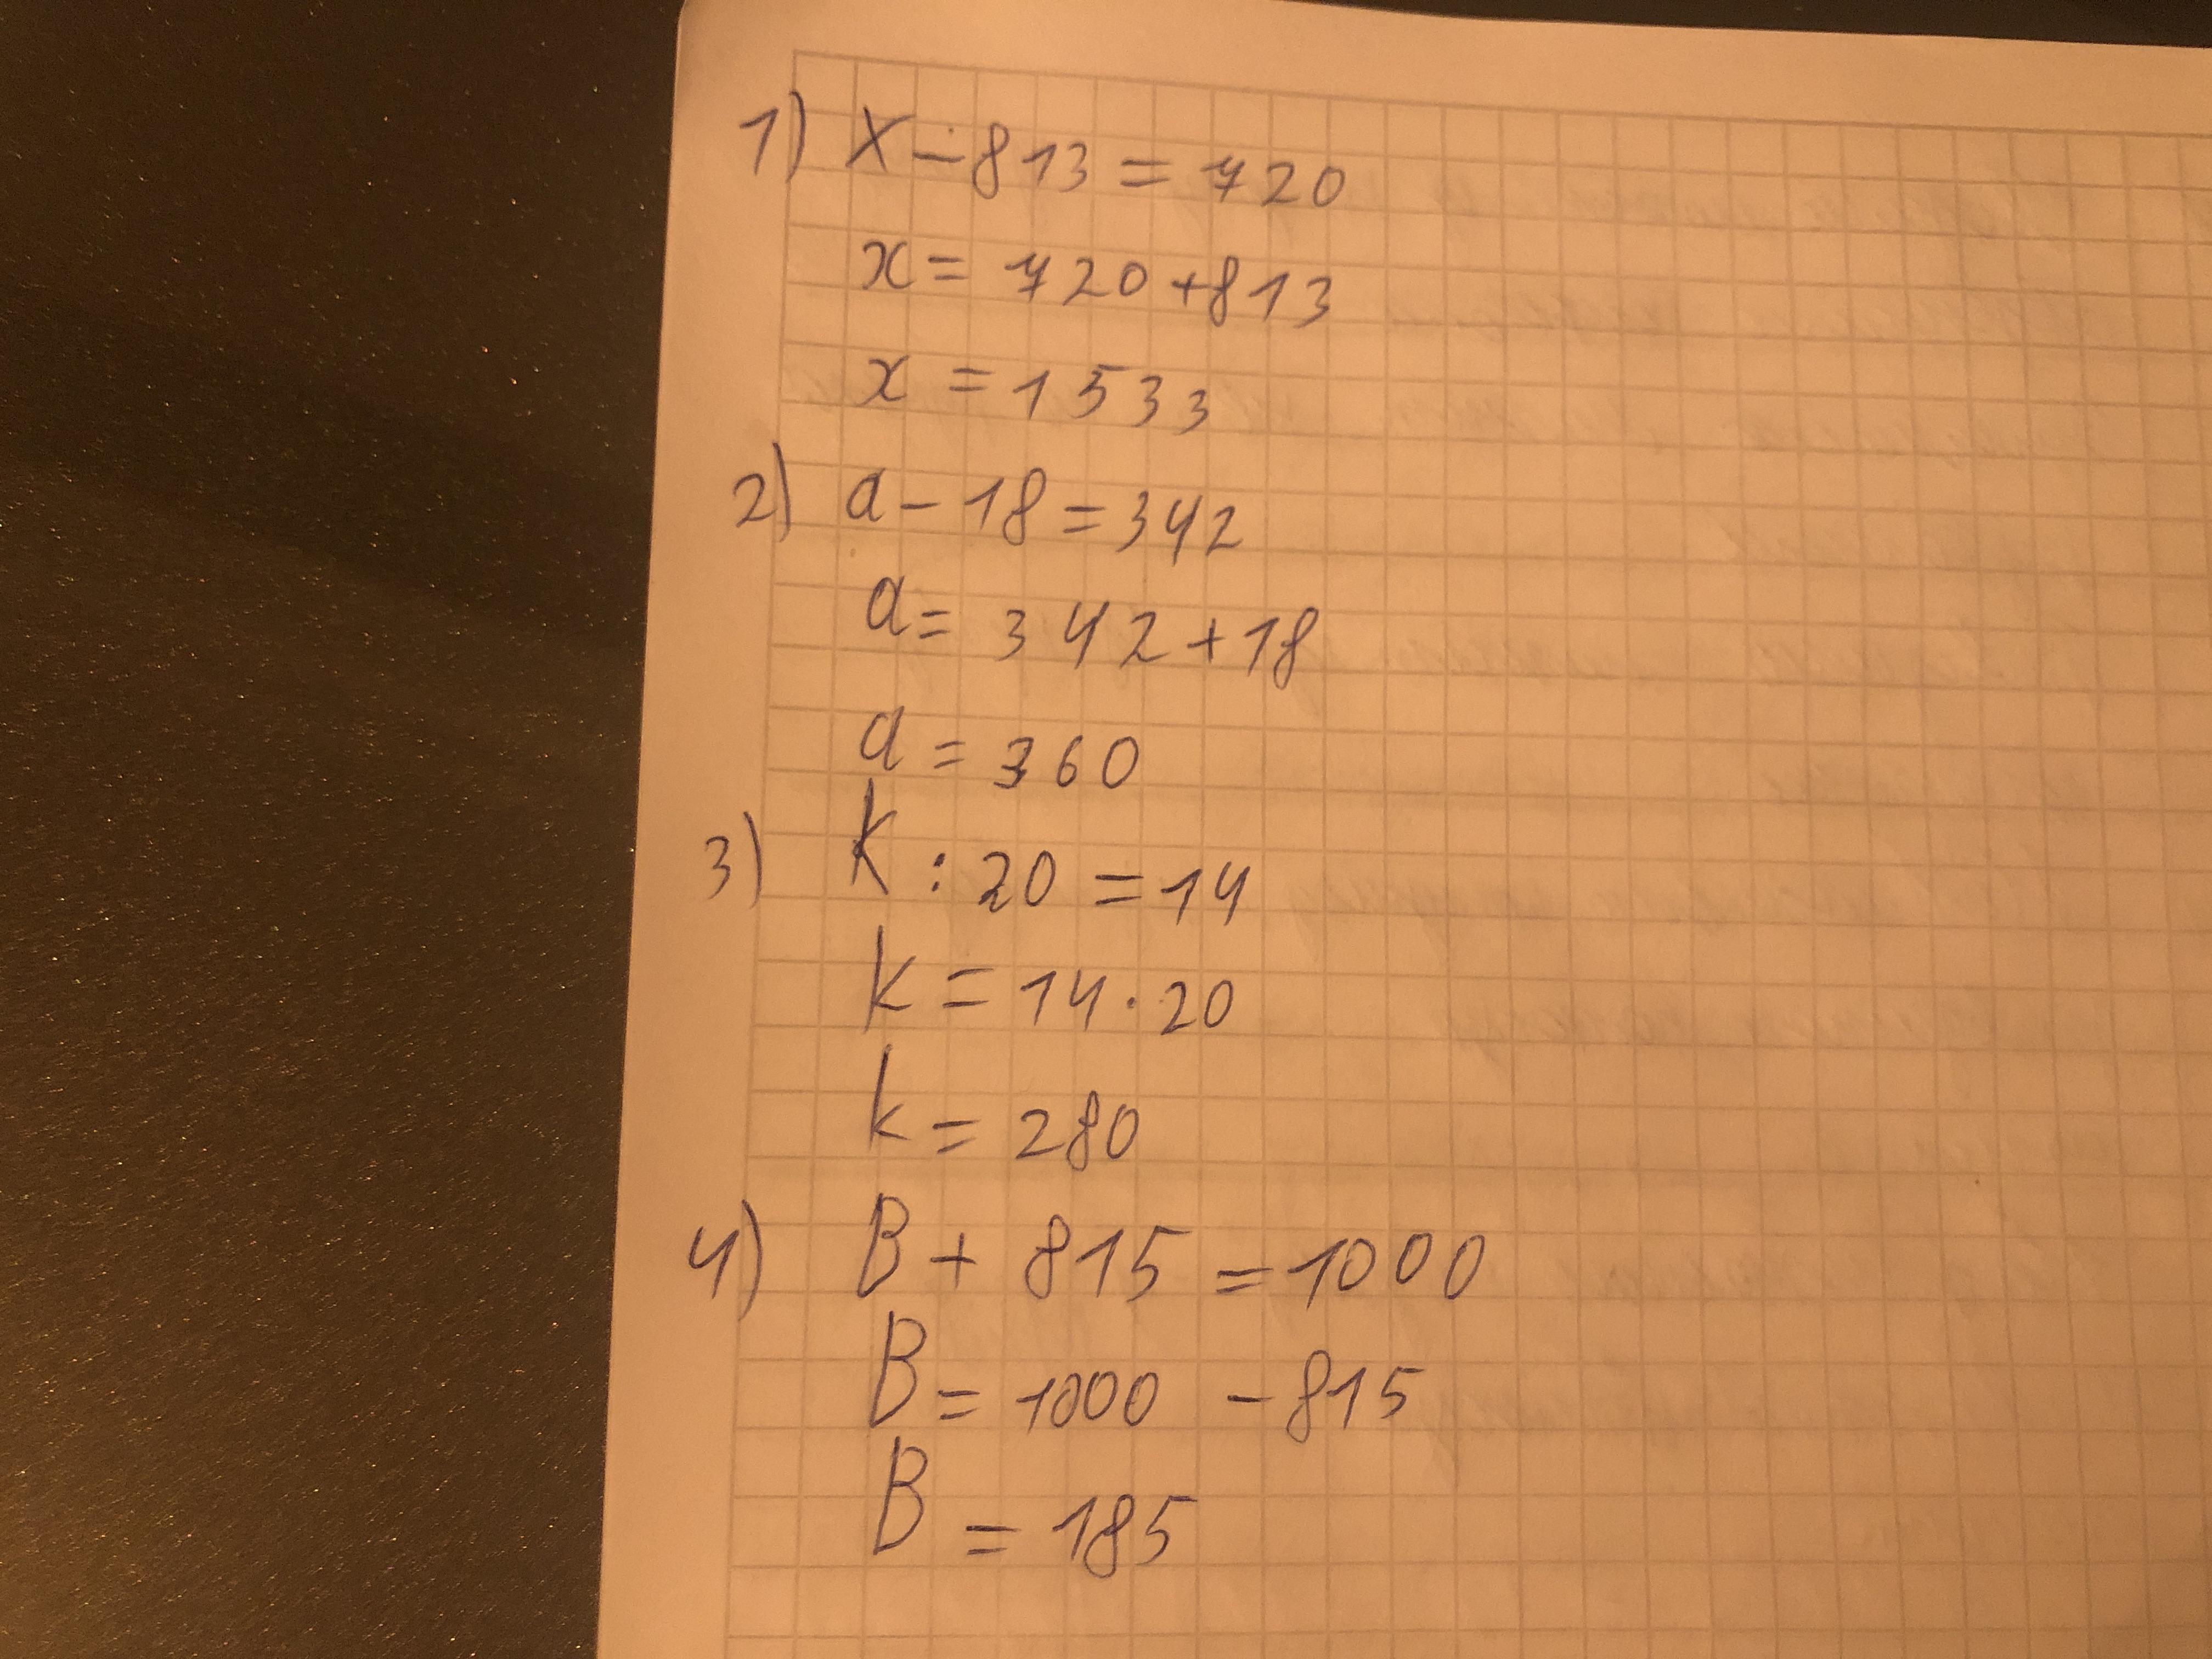 1) x - 813 = 720
x = 720 + 813
x = 1533
2) a - 18 = 342
a = 342 + 18
a = 360
3) k : 20 = 14
k = 14 · 20
k = 280
4) B + 815 = 1000
B = 1000 - 815
B = 185